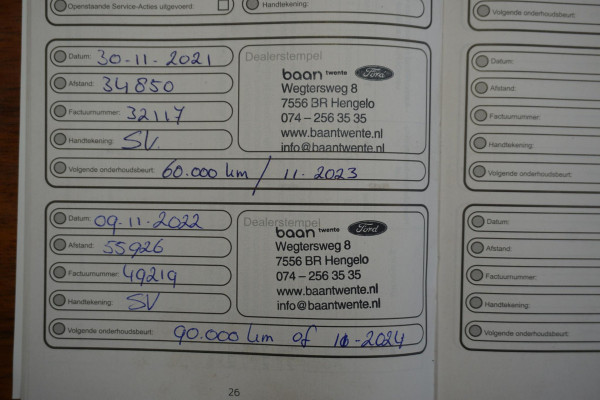 Openstaande Service-Acties uitgevoerd:
Handtekening:
Volgende onderhoudsbeurt:
Datum: 30-11-2021
Afstand: 34850
Factuurnummer: 32117
Handtekening: SV.
Volgende onderhoudsbeurt: 60.000 km / 11-2023
Dealerstempel
baan twente Ford
Wegtersweg 8
7556 BR Hengelo
074 – 256 35 35
www.baantwente.nl
info@baantwente.nl
Datum:
Afstand:
Factuurnummer:
Handtekening:
Volgende onderhoudsbeurt:
Datum: 09-11-2022
Afstand: 55926
Factuurnummer: 49219
Handtekening: SV
Volgende onderhoudsbeurt: 90.000 km of 10-2024
Dealerstempel
baan twente Ford
Wegtersweg 8
7556 BR Hengelo
074 – 256 35 35
www.baantwente.nl
info@baantwente.nl
Datum:
Afstand:
Factuurnummer:
Handtekening:
Volgende onderhoudsbeurt:
26